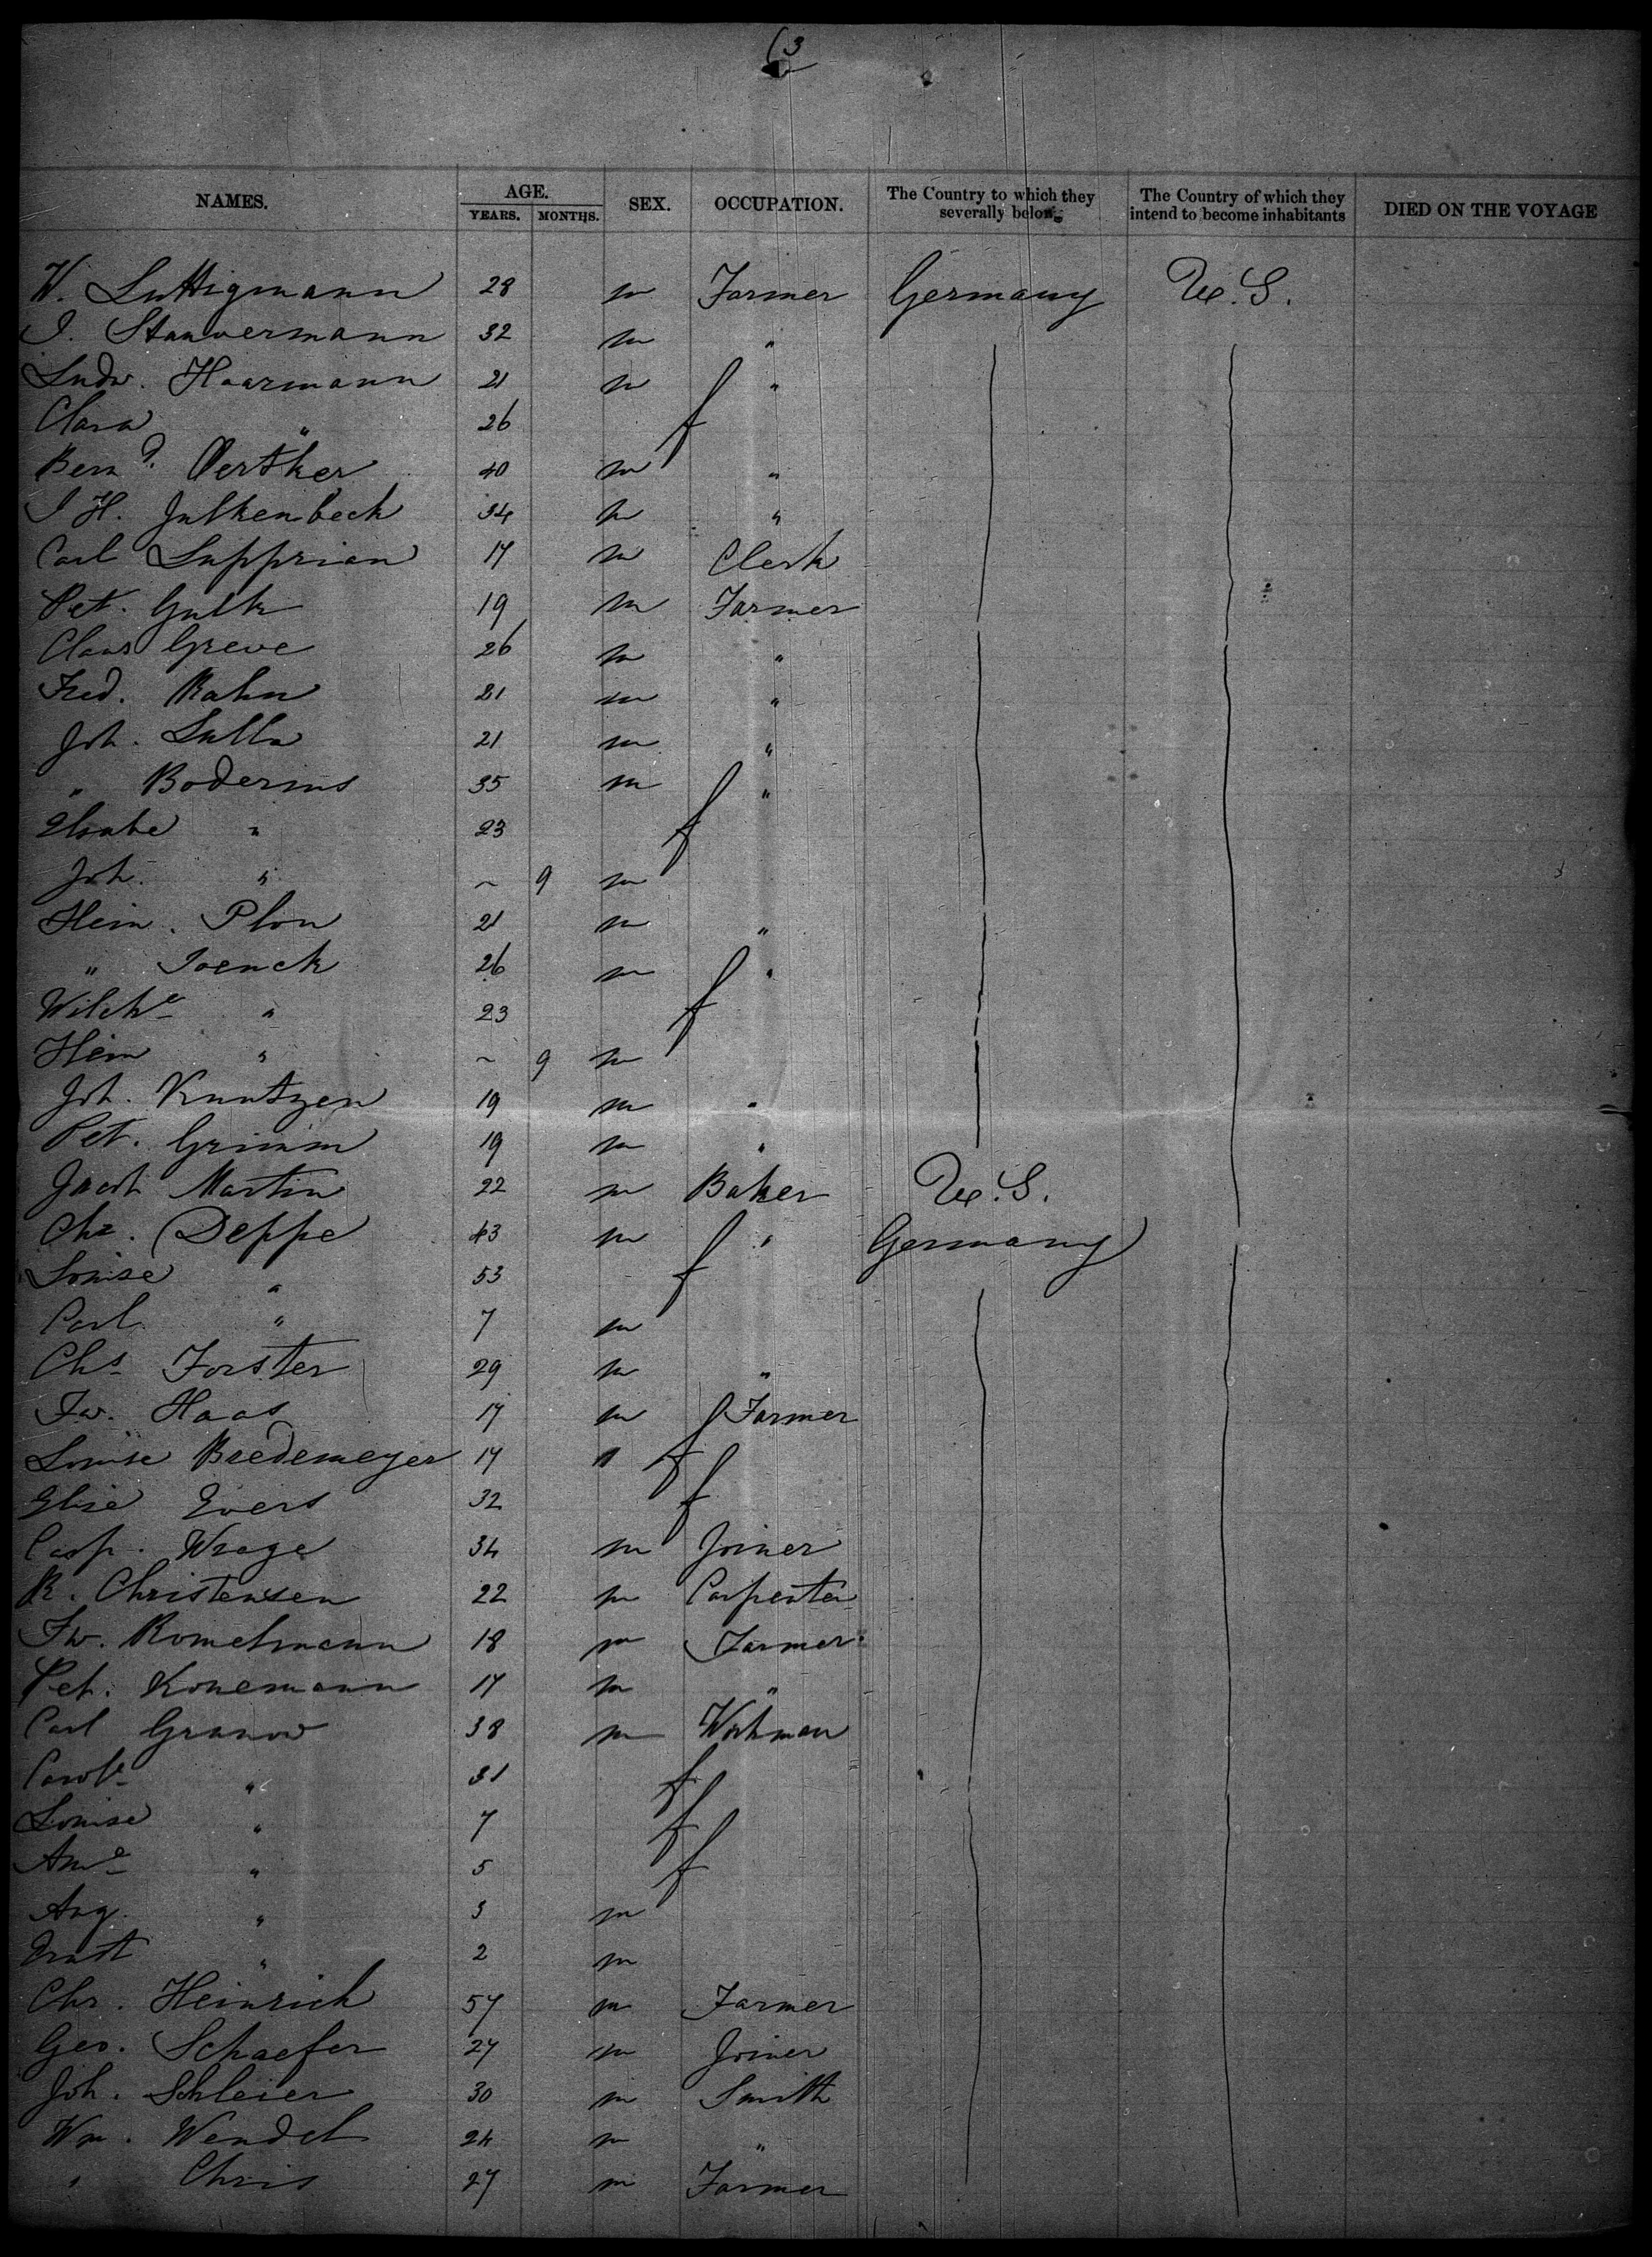 3
NAMES. AGE. YEARS. MONTHS. SEX. OCCUPATION. The Country to which they severally belong The Country of which they intend to become inhabitants DIED ON THE VOYAGE
W. Luttigmann 28 m Farmer Germany U.S.
J. Stauvermann 32 m "
Ludw. Haarmann 21 m "
Clara " 26 f
Bernd. Oertker 40 m "
J H. Julkenbeck 34 m "
Carl Lupprian 17 m Clerk
Pet. Gulk 19 m Farmer
Claus Greve 26 m "
Fred. Rahn 21 m "
Joh. Lulla 21 m "
" Boderius 35 m "
Elsabe " 23 f
Joh. " ~ 9 m
Hein. Plon 21 m "
" Joenck 26 m "
Wilhe " 23 f
Hein " ~ 9 m
Joh. Knutzen 19 m "
Pet. Grimm 19 m "
Jacob Martin 22 m Baker U.S.
Chr. Deppe 43 m " Germany
Louise " 53 f
Carl " 7 m
Chs Forster 29 m "
Fw. Haas 17 m Farmer
Louise Bredemeyer 17 f
Elise Evers 32 f
Casp. Wrage 34 m Joiner
R. Christensen 22 m Carpenter
Fw. Romelmann 18 m Farmer
Pet. Konemann 17 m "
Carl Granow 38 m Workman
Carole " 31 f
Louise " 7 f
Ame " 5 f
Aug. " 3 m
Ernst " 2 m
Chr. Heinrich 57 m Farmer
Geo. Schaefer 27 m Joiner
Joh. Schleier 30 m Smith
Wm. Wendel 24 m "
" Chris 27 m Farmer